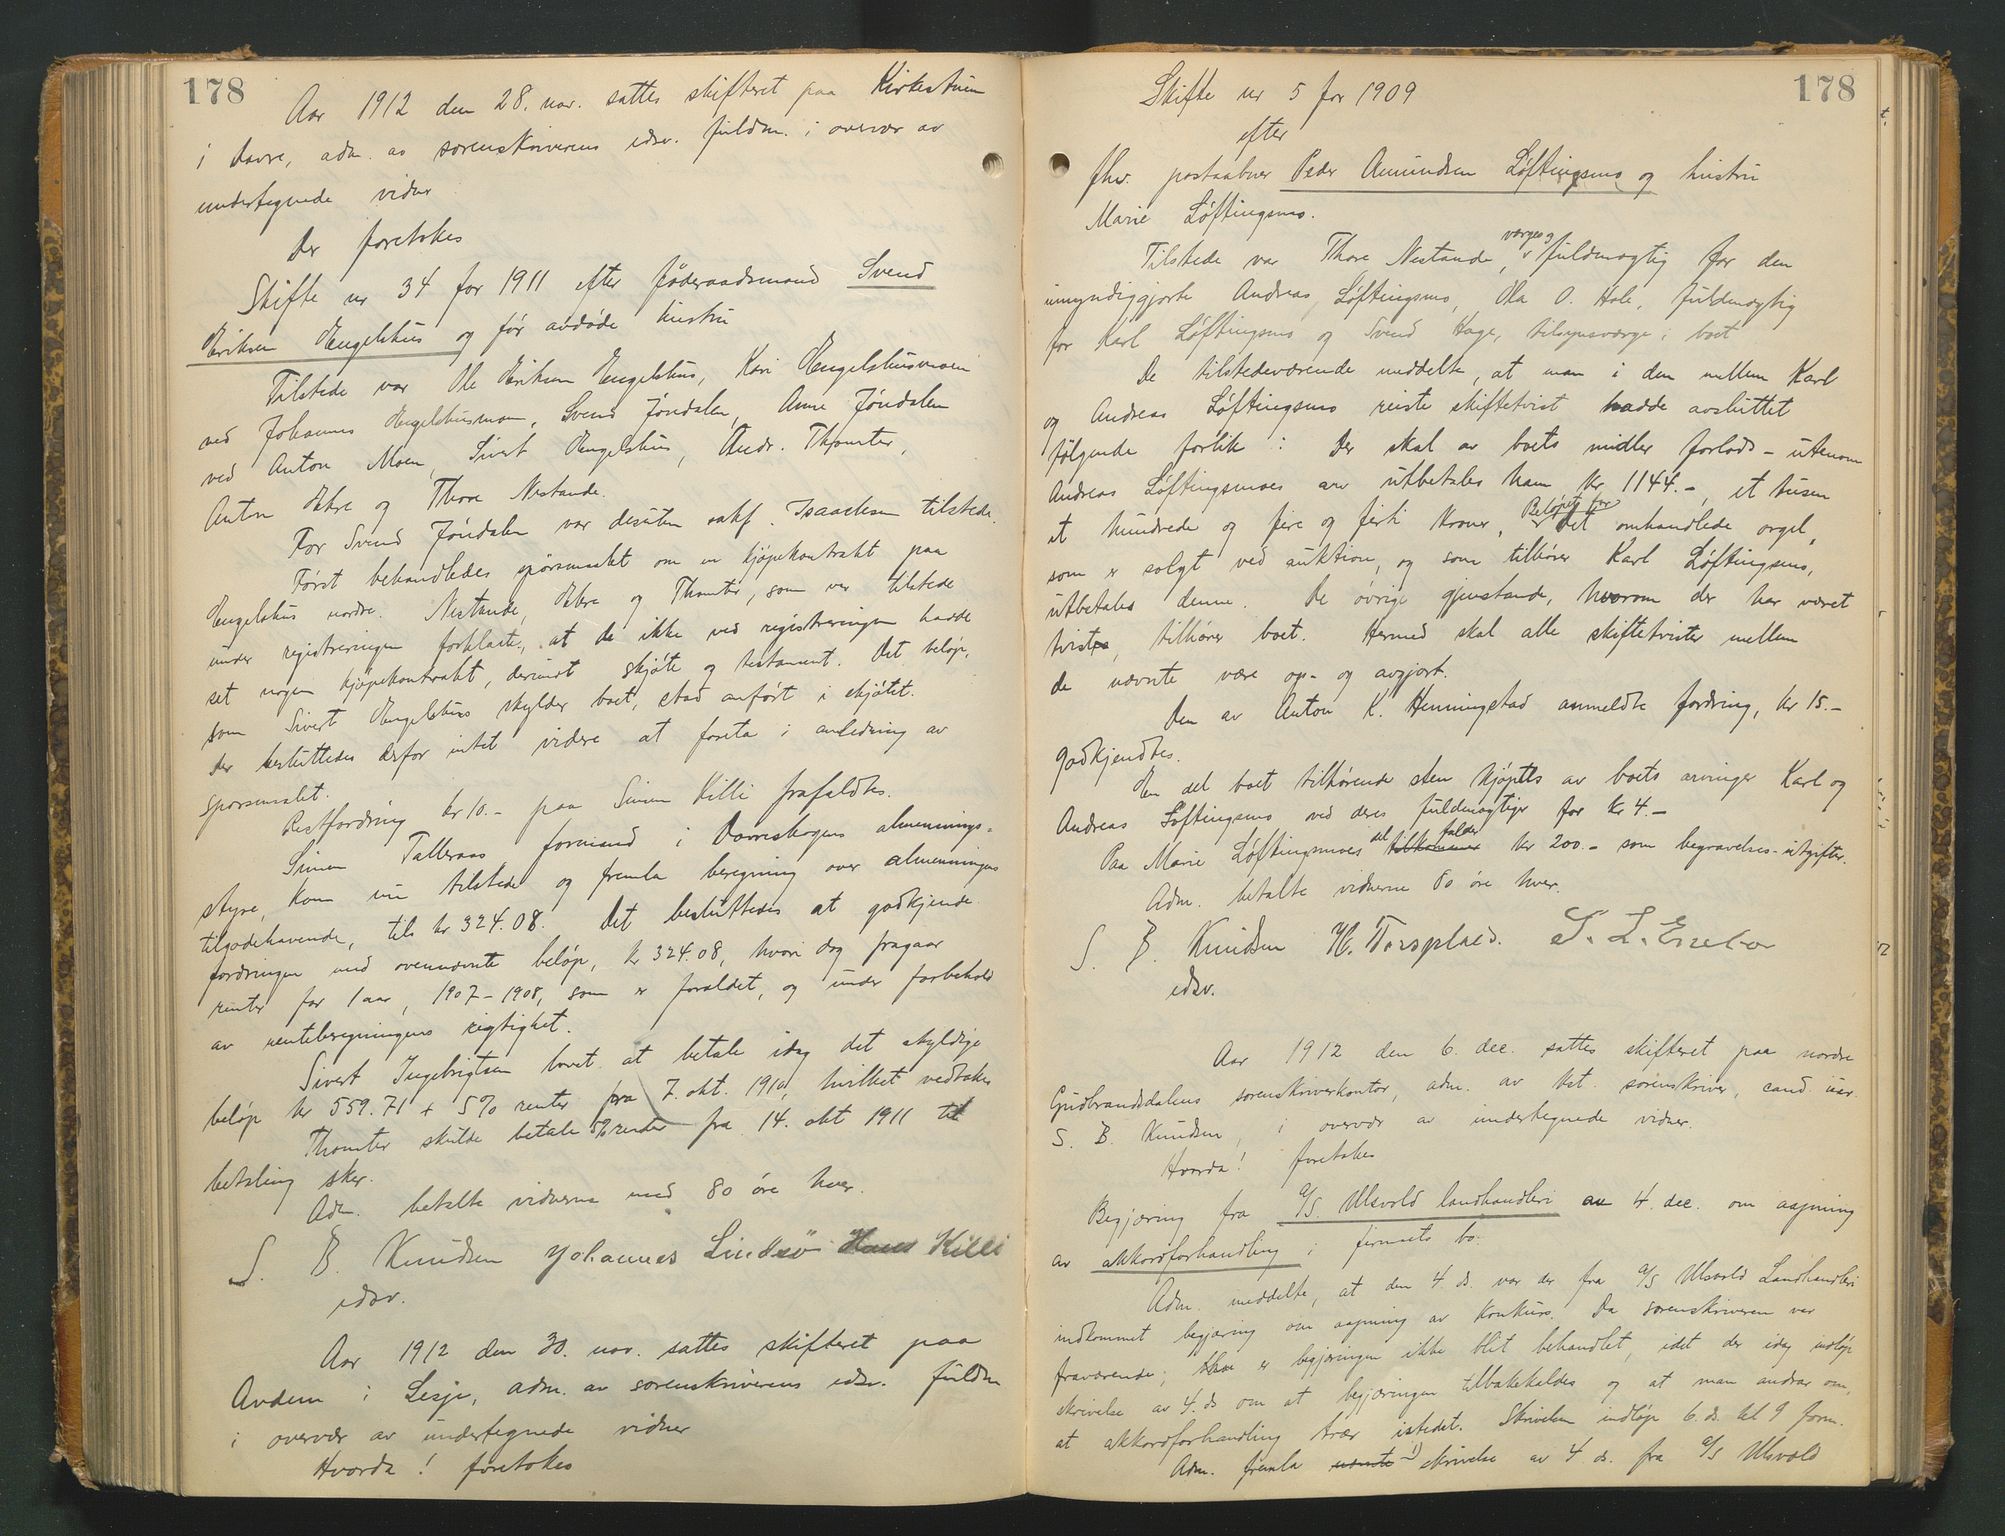 178
Aar 1912 den 28. nov. sattes skifteret paa Kirkestuen
i Dovre, adm. av sorenskriverens edsv. fuldm. i overvær av
undertegnede vidner
Der foretokes
Skifte nr 34 for 1911 efter føderaadsmand Svend
Eriksen Engelshus og før avdøde hustru
Tilstede var Ole Eriksen Engelshus, Kari Engelshusmoen
ved Johannes Engelshusmoen, Svend Jøndalen, Anne Jøndalen
ved Anton Moen, Sivert Engelshus, Andr. Thomter,
Anton Ekre og Thore Nestande.
For Svend Jøndalen var desuten sakf. Isaachsen tilstede.
Først behandledes spørsmaalet om en kjøpekontrakt paa
Engelshus nordre. Nestande, Ekre og Thomter, som var tilstede
under registreringen forklarte, at de ikke ved registreringen hadde
set nogen kjøpekontrakt, derimot skjøte og testament. Det beløp,
som Sivert Engelshus skylder boet, stod anført i skjøtet.
Der besluttedes derfor intet videre at foreta i anledning av
spørsmaalet.
Restfordring kr 10.- paa Simen Killi frafaldtes.
Simen Talleraas formand i Dovreskogens almennings-
styre, kom nu tilstede og fremla beregning over almenningens
tilgodehavende, tils kr 324.08. Det besluttedes at godkjende
fordringen med ovennævnte beløp, kr 324.08, hvori dog fragaar
renter for 1 aar, 1907-1908, som er foraldet, og under forbehold
av renteberegningens rigtighet.
Sivert Ingebrigtsen lovet at betale idag det skyldige
beløp kr 559.71 + 5% renter fra 7. okt. 1910, hvilket vedtokes
Thomter skulde betale 5% renter fra 14. okt 1911 til
betaling sker.
Adm. betalte vidnerne med 80 øre hver.
S. B. Knudsen Johannes Lindsø Hans Killi
edsv.
Aar 1912 den 30. nov. sattes skifteret paa
Avdem i Lesje, adm. av sorenskriverens edsv. fuldm
i overvær av undertegnede vidner
Hvorda! foretokes
178
Skifte nr 5 for 1909
efter
fhv. postaabner Peder Amundsen Løftingsmo og hustru
Marie Løftingsmo.
Tilstede var Thore Nestande, verge og fuldmægtig for den
umyndiggjorte Andreas Løftingsmo, Ola O. Hole, fuldmægtig
for Karl Løftingsmo og Svend Hage, tilsynsverge i boet
De tilstedeværende meddelte, at man i den mellem Karl
og Andreas Løftingsmo reiste skiftetvist hadde avsluttet
følgende forlik: Der skal av boets midler forlods - utenom
Andreas Løftingsmoes arv utbetales ham kr. 1144.-, et tusen
et hundrede og fire og firti kroner, Beløpet for det omhandlede orgel,
som er solgt ved auktion, og som tilhører Karl Løftingsmo,
utbetales denne. De øvrige gjenstande, hvorom der har været
tvist, tilhører boet. Hermed skal alle skiftetvister mellem
de nævnte være op- og avgjort.
Den av Anton K. Henningstad anmeldte fordring, kr 15.-
godkjendtes.
En del boet tilhørende sten kjøptes av boets arvinger Karl og
Andreas Løftingsmo ved deres fuldmægtiger for kr 4.-
Paa Marie Løftingsmoes del falder tilkommer kr 200.- som begravelses-utgifter.
Adm. betalte vidnerne 80 øre hver.
S. B. Knudsen H. Torsplaes. S. L. Enebo
edsv.
Aar 1912 den 6. dec. sattes skifteret paa nordre
Gudbrandsdalens sorenskriverkontor, adm. av kst. sorenskriver, cand. jur.
S. B. Knudsen, i overvær av undertegnede vidner.
Hvorda! foretokes
Begjæring fra A/S. Ulsvold landhandleri av 4. dec. om aapning
av akkordforhandling i firmaets bo.
Adm. meddelte, at den 4 ds. var der fra A/S Ulsvold Landhandleri
indkommet begjæring om aapning av konkurs. Da sorenskriveren var
fraværende, er begjæringen ikke blit behandlet, idet der idag indløp
skrivelse av 4. ds om at begjæringen tilbakekaldes og at man andrar om,
at akkordforhandling trær istedet. Skrivelsen indløp 6. ds. kl 9 form.
Adm. fremla nævnte 1) skrivelse av 4. ds. fra A/S Ulsvold